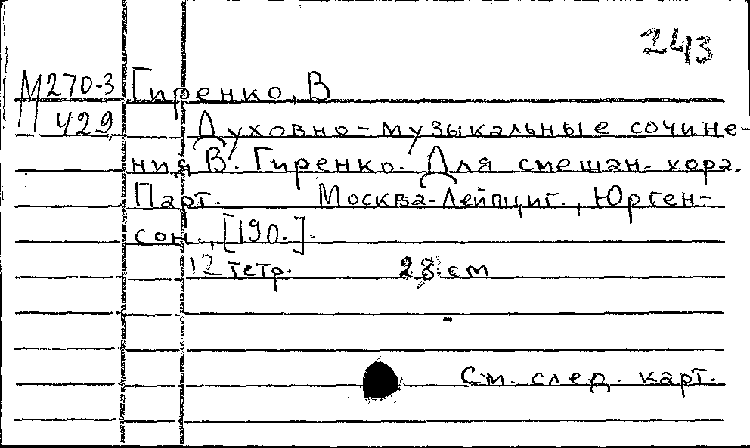 243
М270-3 Гиренко, В
429 Духовно-музыкальные сочине-
ния В. Гиренко. Для смешан. хора.
Парт. Москва-Лейпциг., Юрген-
сон., [190.].
12 тетр. 28 см
См. след. карт.